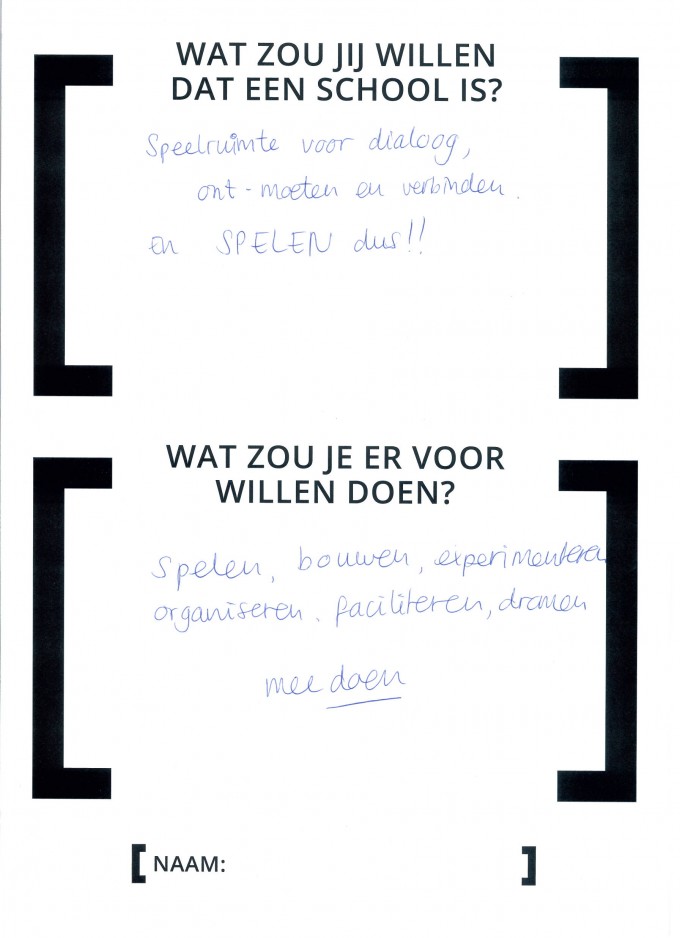 WAT ZOU JIJ WILLEN
DAT EEN SCHOOL IS?
Speelruimte voor dialoog,
ont-moeten en verbinden.
en SPELEN dus!!
WAT ZOU JE ER VOOR
WILLEN DOEN?
Spelen, bouwen, experimenteren
organiseren. faciliteren, dromen
mee doen
[ NAAM: ]